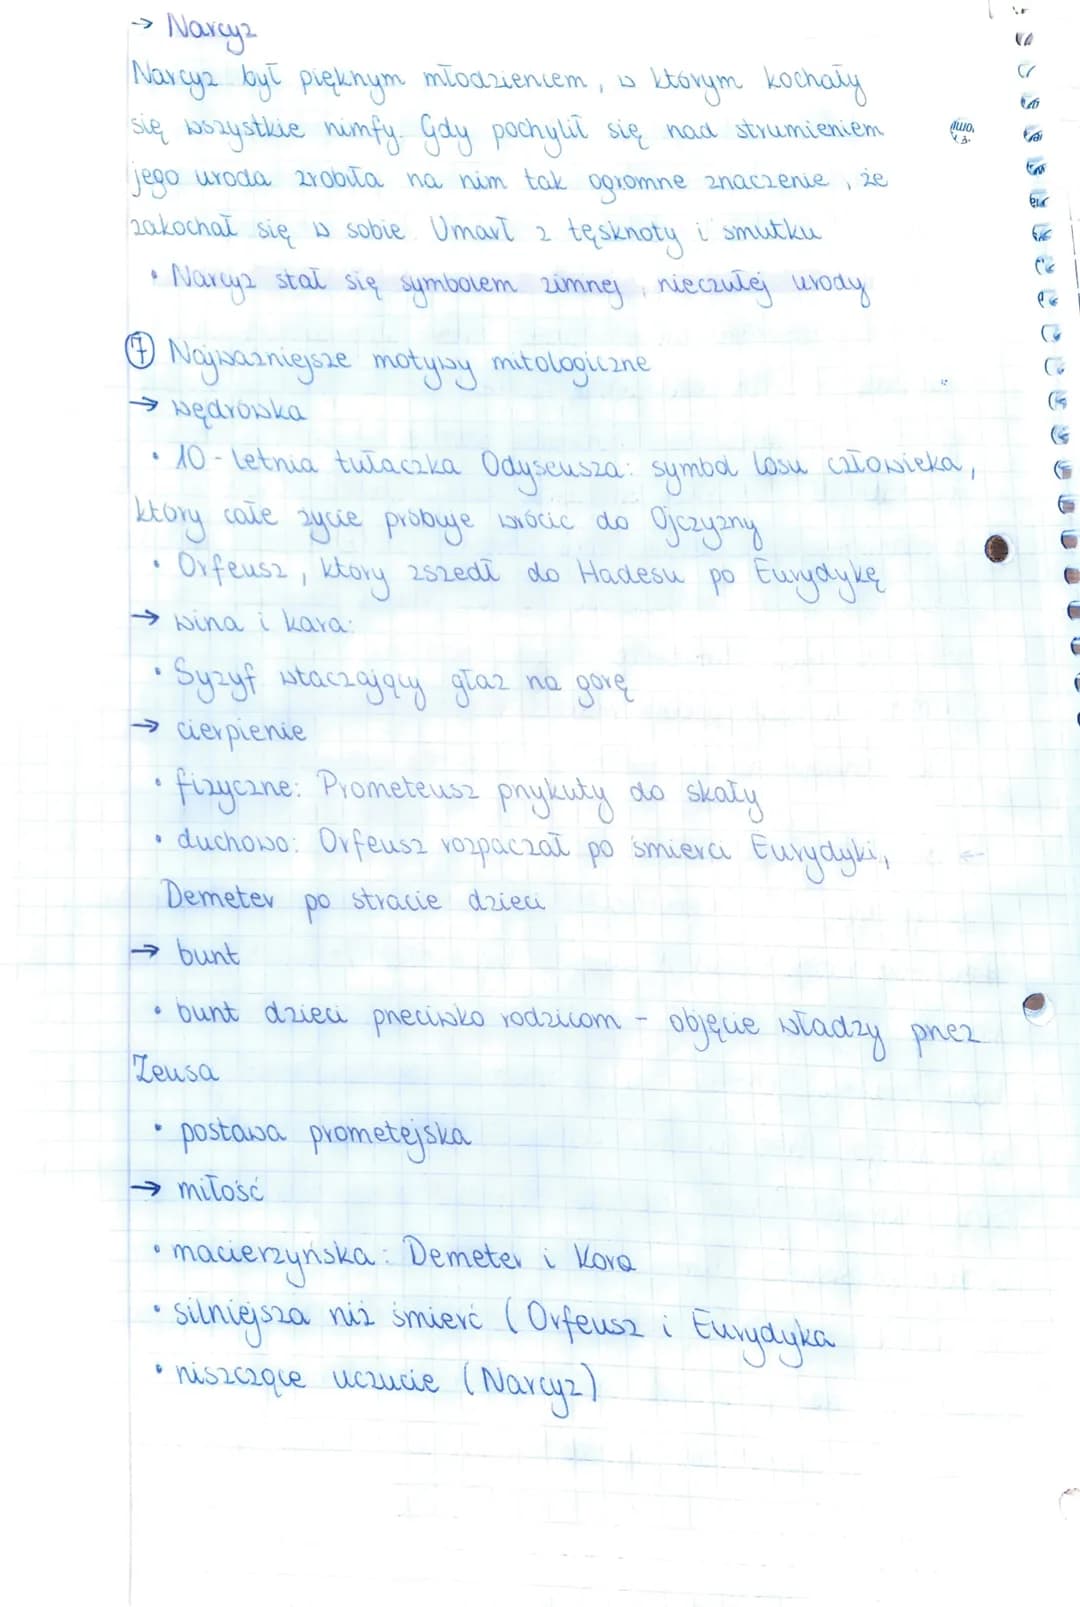 → Narcyz
Narcyz był pięknym młodzieńcem, w którym kochały
się wszystkie nimfy. Gdy pochylił się nad strumieniem
jego uroda zrobiła na nim tak ogromne znaczenie, że
zakochał się w sobie. Umarł z tęsknoty i smutku
• Narcyz stał się symbolem zimnej, nieczułej urody
⑦ Najważniejsze motywy mitologiczne
→ wędrówka
• 10-letnia tułaczka Odyseusza: symbol losu człowieka,
który całe życie próbuje wrócić do Ojczyzny
• Orfeusz, który zszedł do Hadesu po Eurydykę
→ wina i kara:
• Syzyf wtaczający głaz na górę
→ cierpienie
• fizyczne: Prometeusz przykuty do skały
• duchowo: Orfeusz rozpaczał po śmierci Eurydyki,
Demeter po stracie dzieci
→ bunt
• bunt dzieci przeciwko rodzicom - objęcie władzy przez
Zeusa
• postawa prometejska
→ miłość
• macierzyńska: Demeter i Kora
• silniejsza niż śmierć (Orfeusz i Eurydyka
• niszczące uczucie (Narcyz)